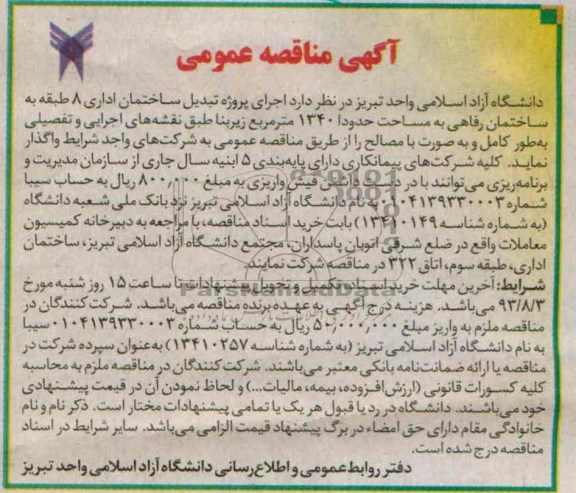 آگهی مناقصه عمومی
دانشگاه آزاد اسلامی واحد تبریز در نظر دارد اجرای پروژه تبدیل ساختمان اداری ۸ طبقه به
ساختمان رفاهی به مساحت حدودا ۱۳۴۰ مترمربع زیربنا طبق نقشه‌های اجرایی و تفصیلی
به‌طور کامل و به صورت با مصالح را از طریق مناقصه عمومی به شرکت‌های واجد شرایط واگذار
نماید. کلیه شرکت‌های پیمانکاری دارای پایه‌بندی ۵ ابنیه سال جاری از سازمان مدیریت و
برنامه‌ریزی می‌توانند با در دست داشتن فیش واریزی به مبلغ ۸۰۰,۰۰۰ ریال به حساب سیبا
شماره ۰۱۰۴۱۳۹۳۳۰۰۰۳ به نام دانشگاه آزاد اسلامی تبریز نزد بانک ملی شعبه دانشگاه
(به شماره شناسه ۱۳۴۱۰۱۴۹) بابت خرید اسناد مناقصه، با مراجعه به دبیرخانه کمیسیون
معاملات واقع در ضلع شرقی اتوبان پاسداران، مجتمع دانشگاه آزاد اسلامی تبریز، ساختمان
اداری، طبقه سوم، اتاق ۳۲۲ در مناقصه شرکت نمایند.
شرایط: آخرین مهلت خرید اسناد، تکمیل و تحویل پیشنهادات تا ساعت ۱۵ روز شنبه مورخ
۹۳/۸/۳ می‌باشد. هزینه درج آگهی به عهده برنده مناقصه می‌باشد. شرکت کنندگان در
مناقصه ملزم به واریز مبلغ ۵۰,۰۰۰,۰۰۰ ریال به حساب شماره ۰۱۰۴۱۳۹۳۳۰۰۰۳ سیبا
به نام دانشگاه آزاد اسلامی تبریز (به شماره شناسه ۱۳۴۱۰۲۵۷) به‌عنوان سپرده شرکت در
مناقصه یا ارائه ضمانت‌نامه بانکی معتبر می‌باشند. شرکت‌کنندگان در مناقصه ملزم به محاسبه
کلیه کسورات قانونی (ارزش افزوده، بیمه، مالیات...) و لحاظ نمودن آن در قیمت پیشنهادی
خود می‌باشند. دانشگاه در رد یا قبول هر یک یا تمامی پیشنهادات مختار است. ذکر نام و نام
خانوادگی مقام دارای حق امضاء در برگ پیشنهاد قیمت الزامی می‌باشد. سایر شرایط در اسناد
مناقصه درج شده است.
دفتر روابط عمومی و اطلاع‌رسانی دانشگاه آزاد اسلامی واحد تبریز
ParsNamadData